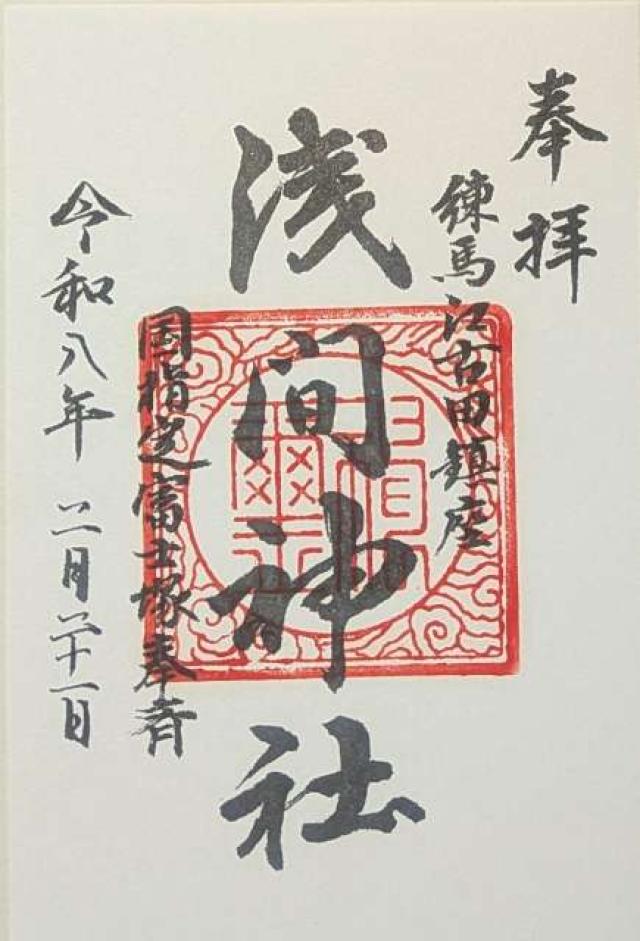 奉拝
練馬江古田鎮座
浅間神社
国指定富士塚奉斉
令和八年 二月二十一日